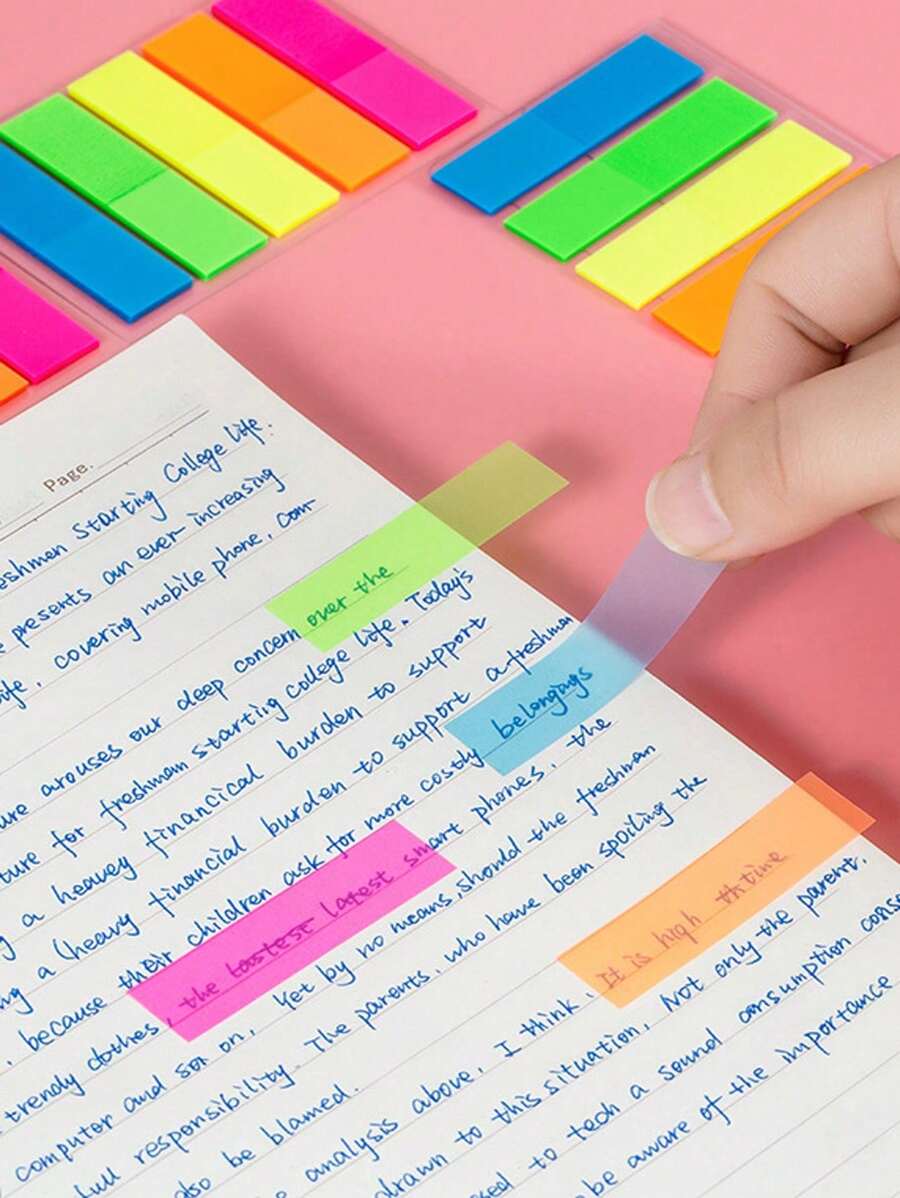 Page.
eshmen Starting College Life.
e presents an ever-increasing
ife, covering mobile phone, com-
ure arouses our deep concern over the
ture for freshman starting college life. Today's
a heavey financical burden to support
ng a (heavy financial burden to support a freshman
, because their children ask for more costly belongings
trendy clothes, the lastest smart phones, the
computer and so on. Yet by no means, should the freshman
full responsibility. The parents, who have been spoiling the
also be blamed.
analysis above, I think, It is high thtime
drawn to this situation. Not only the parent,
sed to tech a sound consumption conse
be aware of the importance